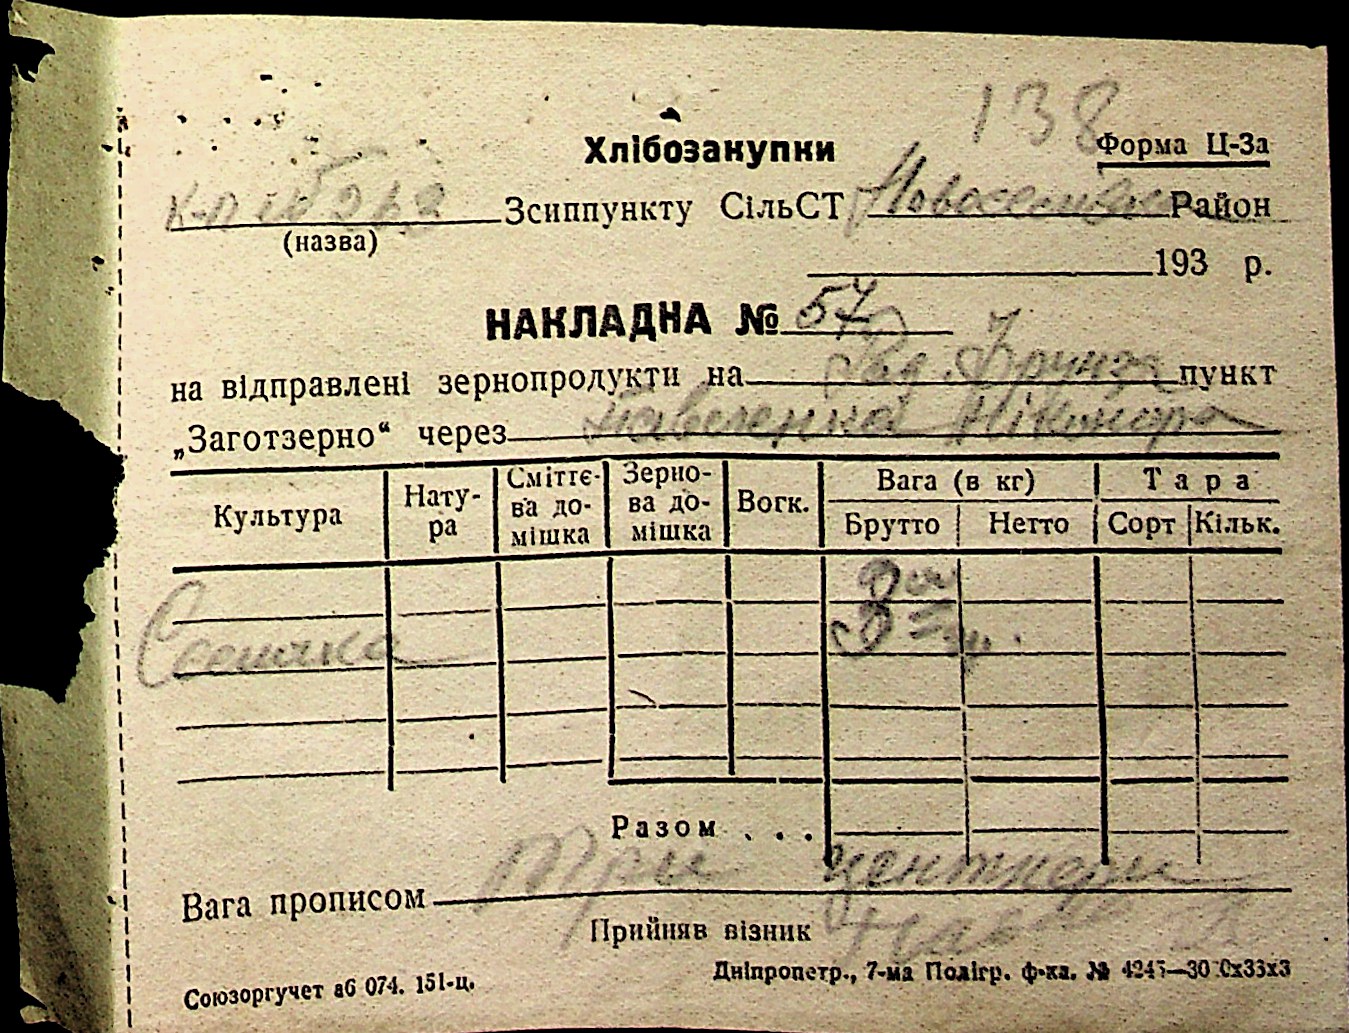 138
Хлібозакупки
Форма Ц-3а
Зсиппункту СільСТ Район
(назва)
193 р.
НАКЛАДНА № 57
на відправлені зернопродукти на Рад. Фрунзе пункт
„Заготзерно“ через ПавленкаНіконора
Культура Нату-ра Сміттє-ва до-мішка Зерно-ва до-мішка Вогк. Вага (в кг) Тара
Брутто Нетто Сорт Кільк.
Разом . . .
Вага прописом Три центнери
Прийняв візник
Союзоргучет аб 074. 151-ц.
Дніпропетр., 7-ма Полігр. ф-ка. №